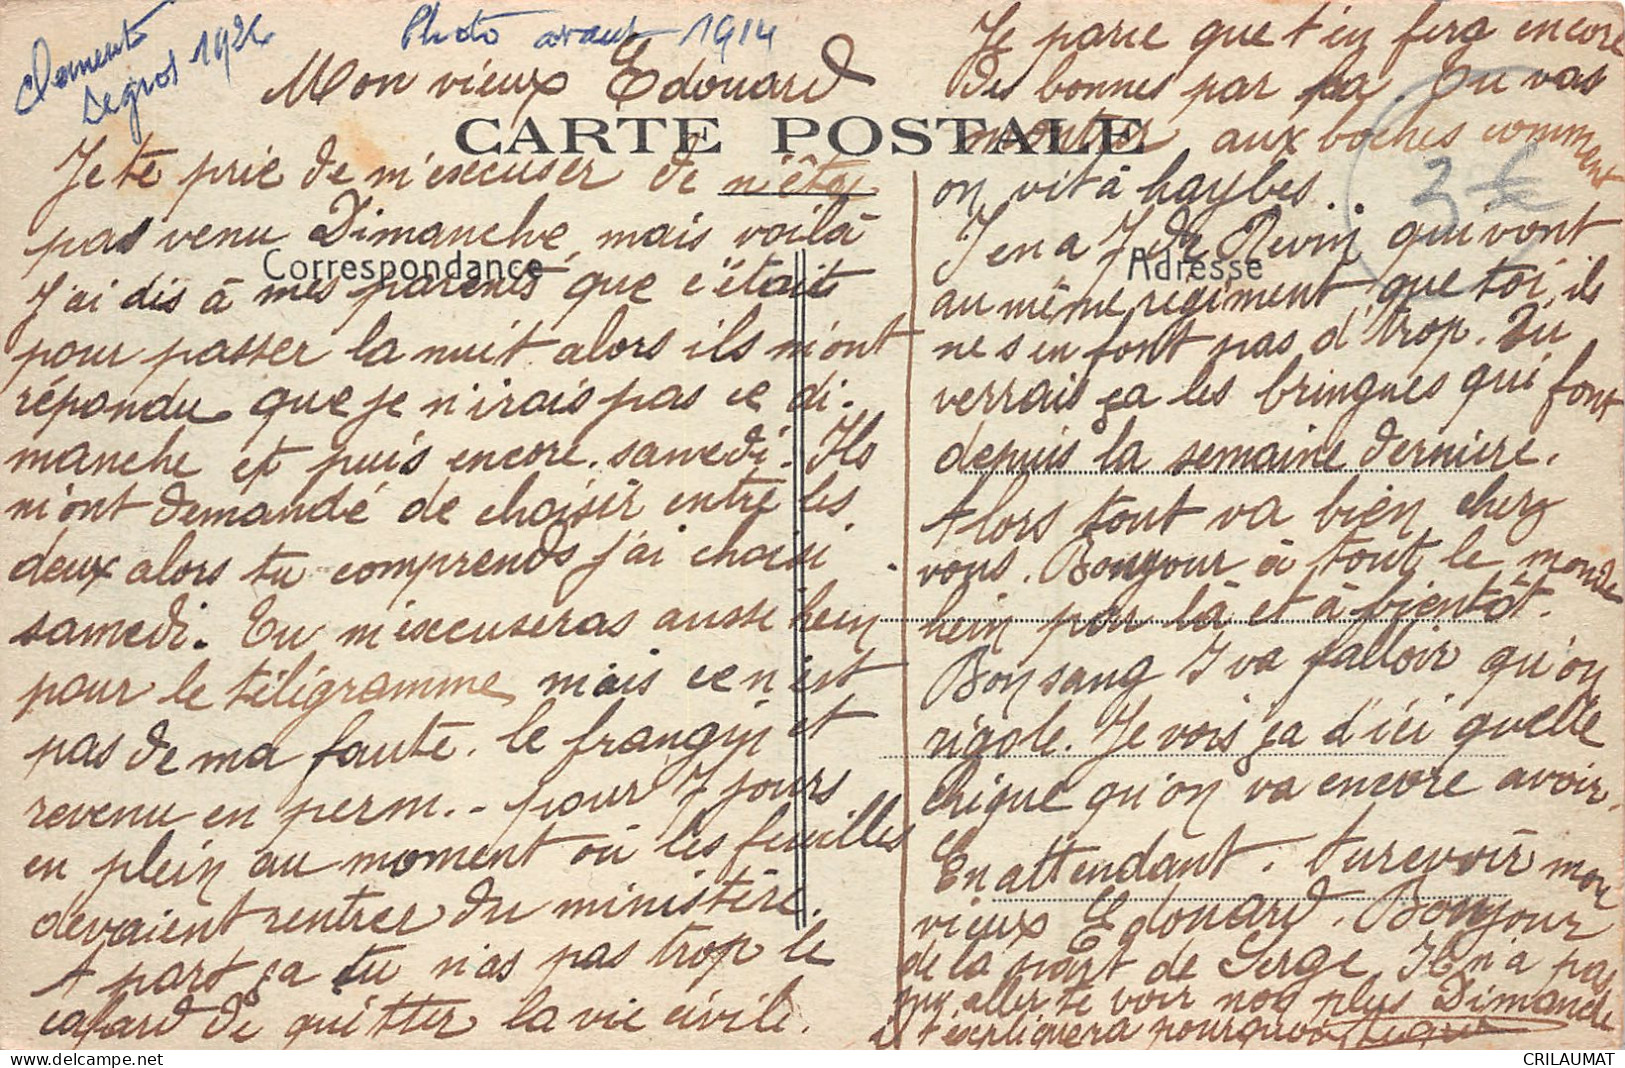 Clement
Legros 192
Photo avant 1914
Mon vieux Edouard
CARTE POSTALE
Correspondance
Adresse
3€
Je te prie de m'excuser de n'être
pas venu Dimanche, mais voilà
J'ai dis à mes parents que c'était
pour passer la nuit alors ils m'ont
répondu que je n'irais pas ce di-
manche et puis encore samedi. Ils
m'ont demandé de choisir entre les
deux alors tu comprends j'ai choisi
samedi. Tu m'excuseras aussi hein
pour le téligramme, mais ce n'est
pas de ma faute. le frangin et
revenu en perm.- pour 7 jours
en plein au moment où les feuilles
devaient rentrer du ministère.
A part ça tu n'as pas trop le
cafard de quitter la vie civile.
Je parie que t'en fera encore
des bonnes par là. Tu vas
montrer aux boches comment
on vit à haybes..
J'en a 7 de Revin qui vont
au même régiment que toi, ils
ne s'en font pas d'trop. Tu
verrais ça les bringues qui font
depuis la semaine dernière.
Alors tout va bien chez
vous. Bonjour à tout le monde
hein par là et à bientôt.
Bon sang J va falloir qu'on
rigole. Je vois ça d'ici quelle
chique qu'on va encore avoir.
En attendant. turevoir mon
vieux Edouard. Bonjour
de la part de Serge. Il n'a pas
pu aller te voir non plus Dimanche
il t'expliquera pourquoi
CRILAUMAT